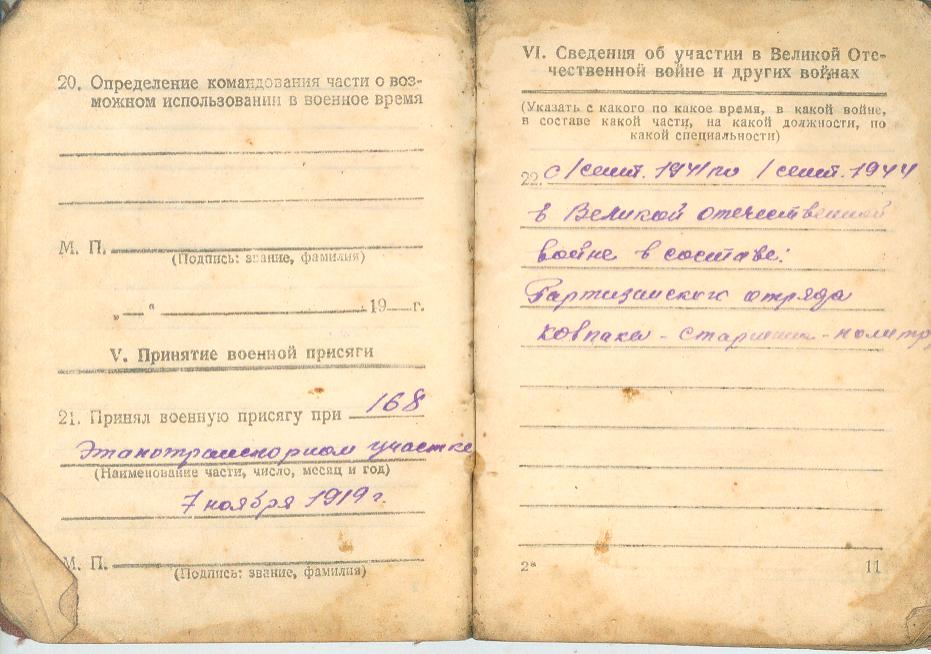 20. Определение командования части о воз-
можном использовании в военное время
М. П.
(Подпись: звание, фамилия)
„ — “ 19 — г.
V. Принятие военной присяги
21. Принял военную присягу при 168
Этапотранспорном участке
(Наименование части, число, месяц и год)
7 ноября 1919 г.
М. П.
(Подпись: звание, фамилия)
VI. Сведения об участии в Великой Оте-
чественной войне и других войнах
(Указать с какого по какое время, в какой войне,
в составе какой части, на какой должности, по
какой специальности)
22. с 1 сент. 1941 по 1 сент. 1944
в Великой отечественной
войне в составе:
Партизанского отряда
Ковпака -
2*
11